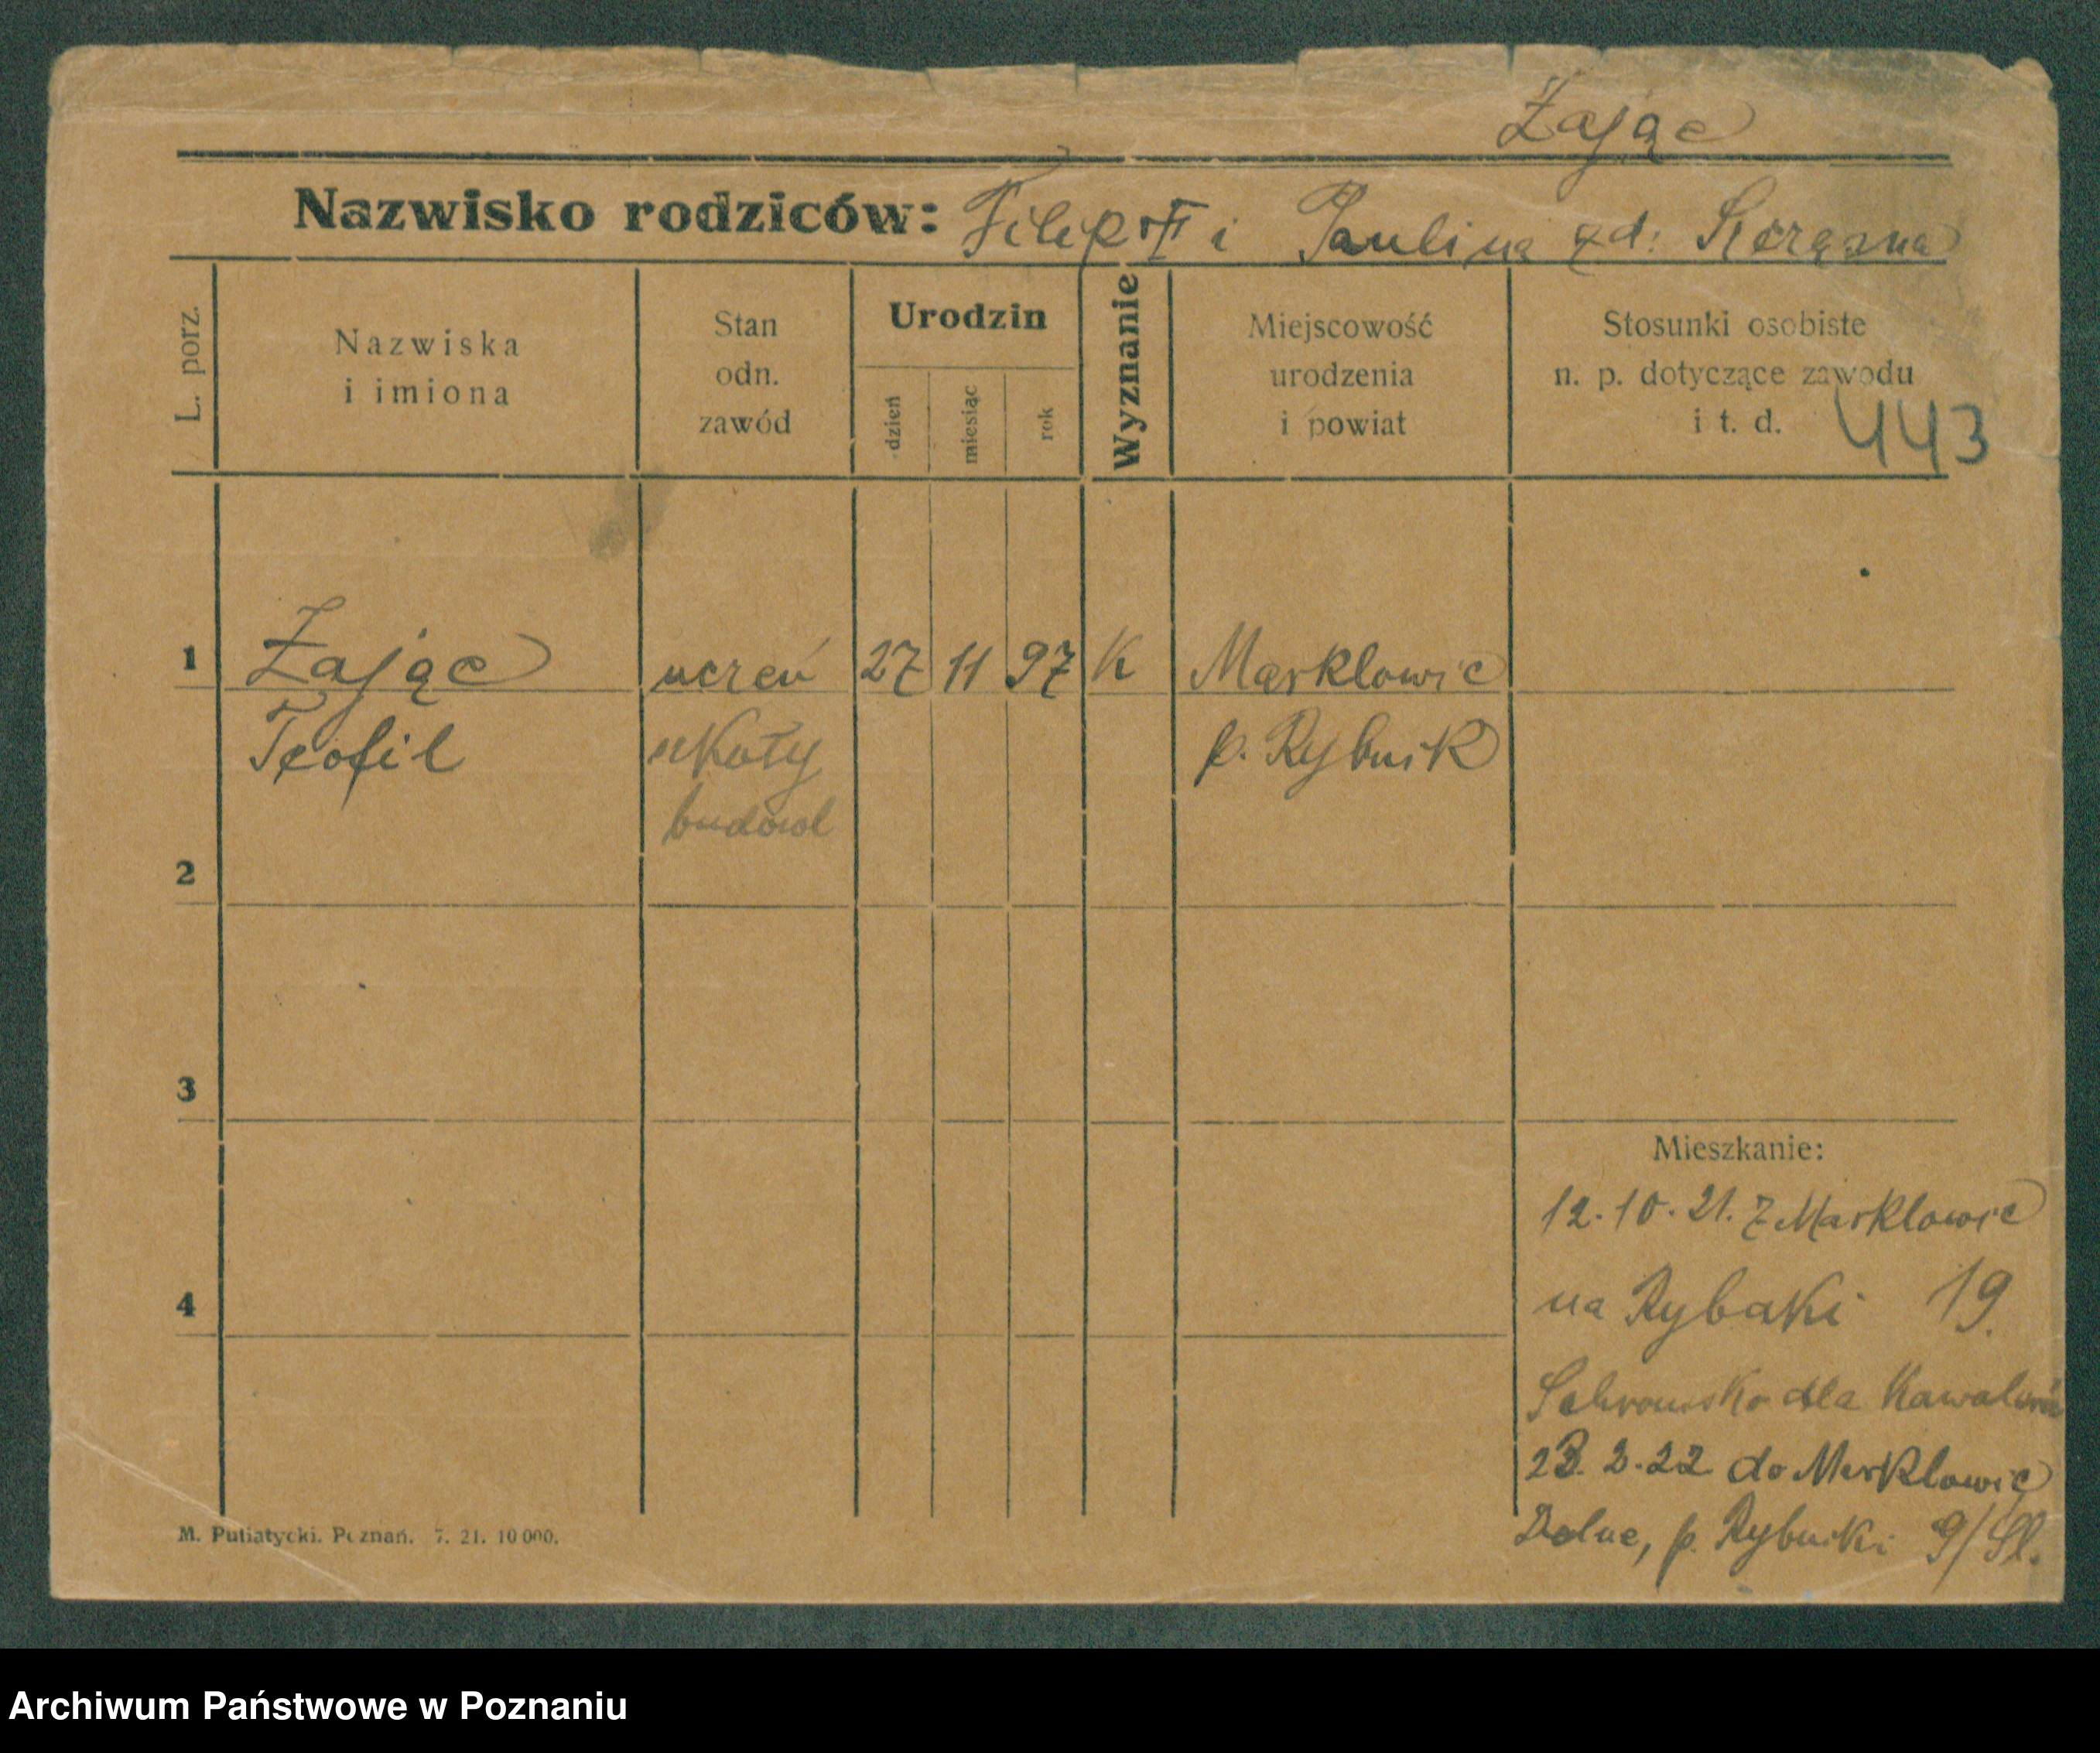 Zając
Nazwisko rodziców: Filip † i Paulina zd:
L. porz.
Nazwiska
i imiona
Stan
odn.
zawód
Urodzin
dzień
miesiąc
rok
Wyznanie
Miejscowość
urodzenia
i powiat
Stosunki osobiste
n. p. dotyczące zawodu
i t. d.
443
1 Zając uczeń 27 11 97 K Marklowic
Teofil szkoły p. Rybnik
budowl
2
3
4
Mieszkanie:
12.10.21. z Marklowic
na Rybaki 19.
Schronisko dla Kawalerów
23.2.22 do Marklowic
Dolne, p. Rybniki g/Śl.
M. Putiatycki. Poznań. 7. 21. 10 000.
Archiwum Państwowe w Poznaniu